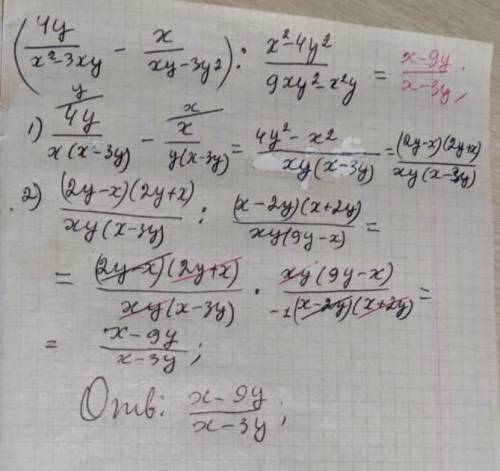 (4y/(x²-3xy) - x/(xy-3y²)) : (x²-4y²)/(9xy²-x²y) = (x-9y)/(x-3y);
1) 4y/(x(x-3y)) \y - x/(y(x-3y)) \x = (4y²-x²)/(xy(x-3y)) = ((2y-x)(2y+x))/(xy(x-3y))
2) ((2y-x)(2y+x))/(xy(x-3y)) : ((x-2y)(x+2y))/(xy(9y-x)) =
= ((2y-x)(2y+x))/(xy(x-3y)) · (xy(9y-x))/(-1(x-2y)(x+2y)) =
= (x-9y)/(x-3y);
Отв: (x-9y)/(x-3y);